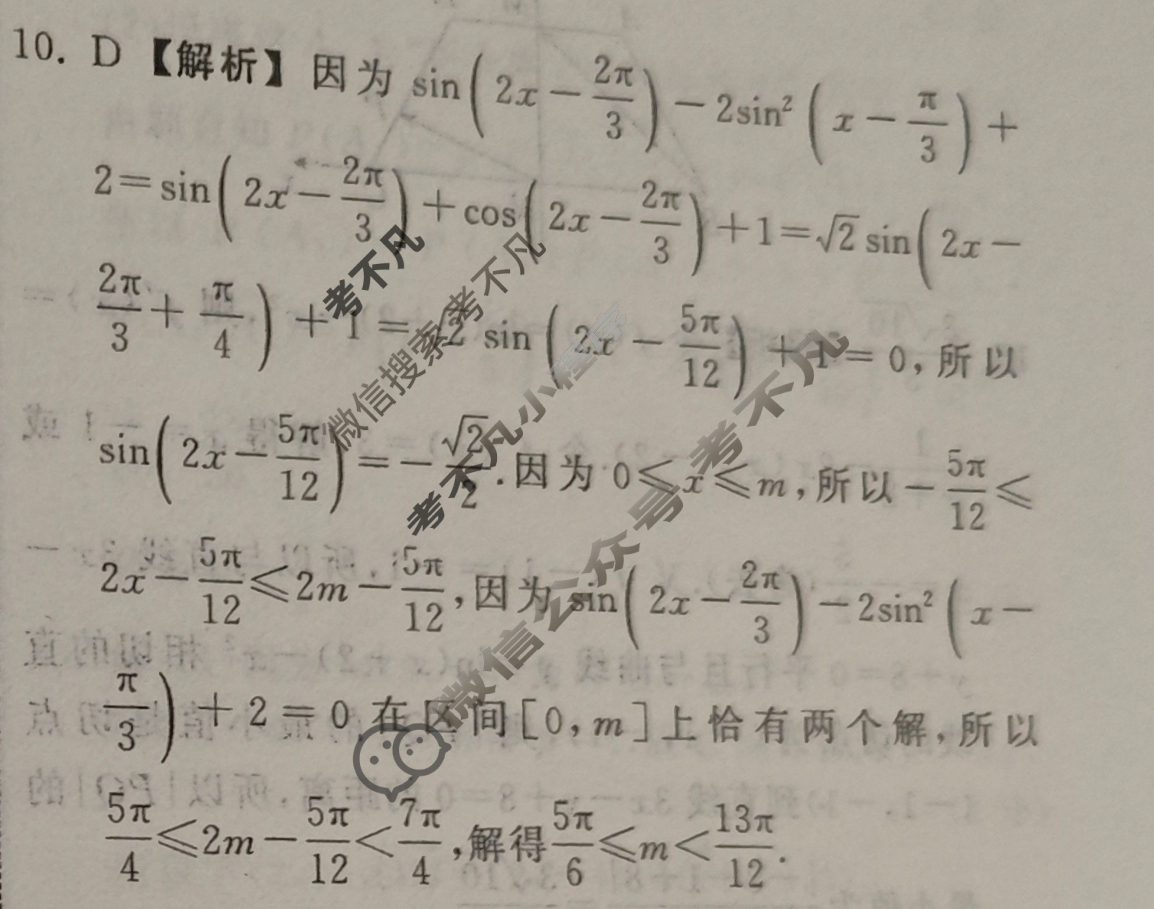 10. D 【解析】因为 sin(2x－2π/3)－2sin²(x－π/3)＋
2＝sin(2x－2π/3)＋cos(2x－2π/3)＋1＝√2 sin(2x－
2π/3＋π/4)＋1＝√2 sin(2x－5π/12)＋1＝0,所以
sin(2x－5π/12)＝－√2/2.因为 0≤x≤m,所以－5π/12≤
2x－5π/12≤2m－5π/12,因为 sin(2x－2π/3)－2sin²(x－
π/3)＋2＝0 在区间[0,m]上恰有两个解,所以
5π/4≤2m－5π/12<7π/4,解得5π/6≤m<13π/12.
考不凡
微信搜索考不凡
考不凡小程序
微信公众号考不凡